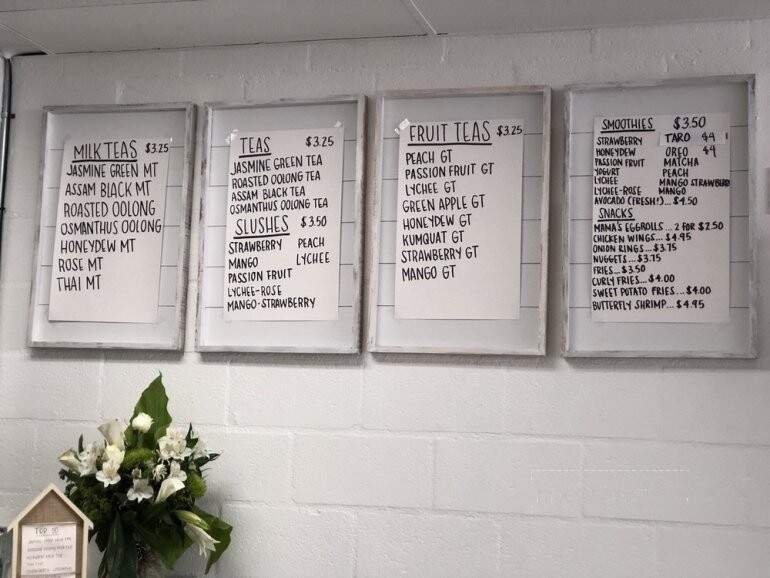 MILK TEAS $3.25
JASMINE GREEN MT
ASSAM BLACK MT
ROASTED OOLONG
OSMANTHUS OOLONG
HONEYDEW MT
ROSE MT
THAI MT
TEAS $3.25
JASMINE GREEN TEA
ROASTED OOLONG TEA
ASSAM BLACK TEA
OSMANTHUS OOLONG TEA
SLUSHES $3.50
STRAWBERRY PEACH
MANGO LYCHEE
PASSION FRUIT
LYCHEE-ROSE
MANGO-STRAWBERRY
FRUIT TEAS $3.25
PEACH GT
PASSION FRUIT GT
LYCHEE GT
GREEN APPLE GT
HONEYDEW GT
KUMQUAT GT
STRAWBERRY GT
MANGO GT
SMOOTHIES $3.50
STRAWBERRY TARO $4
HONEYDEW OREO $4
PASSION FRUIT MATCHA
YOGURT PEACH
LYCHEE MANGO STRAWBERRY
LYCHEE-ROSE MANGO
AVOCADO (FRESH!)... $4.50
SNACKS
MAMA'S EGGROLLS... 2 FOR $2.50
CHICKEN WINGS... $4.95
ONION RINGS... $3.75
NUGGETS... $3.75
FRIES... $3.50
CURLY FRIES... $4.00
SWEET POTATO FRIES... $4.00
BUTTERFLY SHRIMP... $4.95
TOP 10